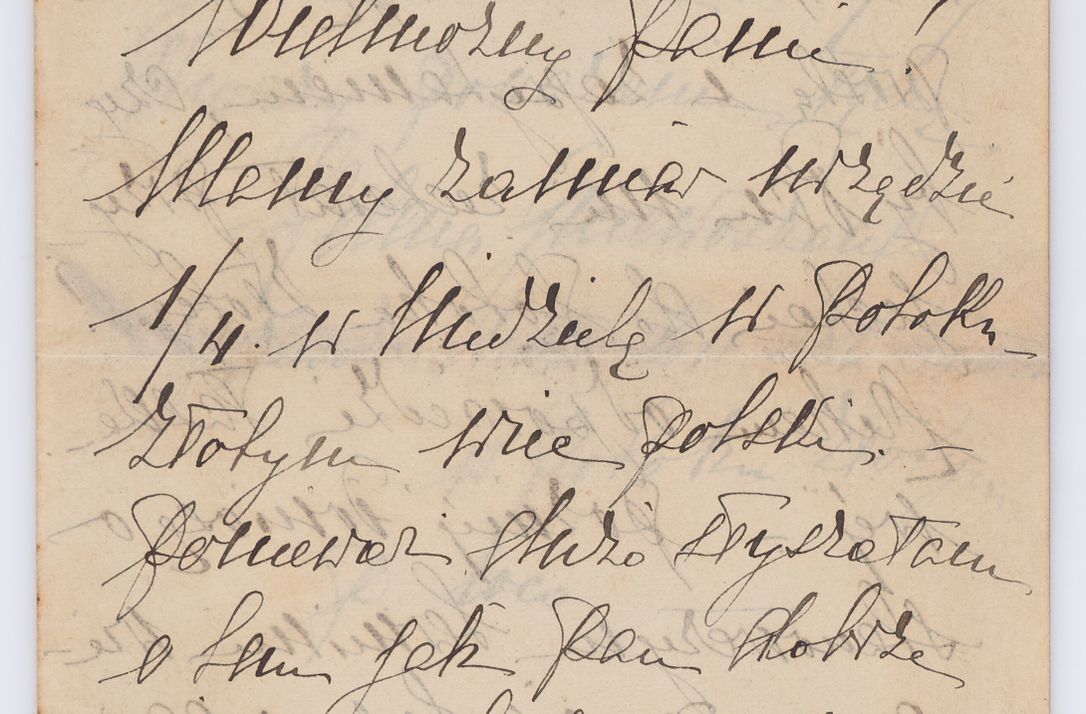 Wielmożny Panie!
Mamy zamiar urządzić
1/4. w Niedzielę w Potoku
Złotym wiec polski. –
Ponieważ dużo słyszałam
o tem jak Pan dobrze